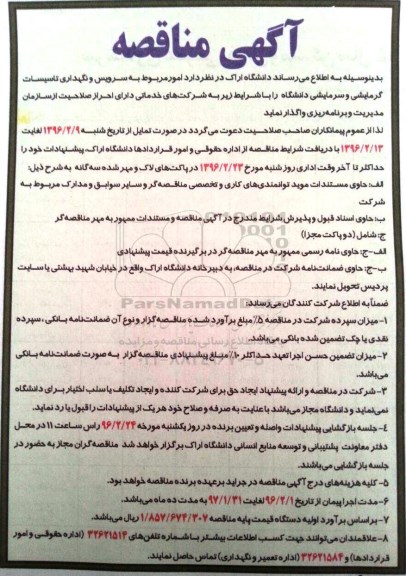 آگهی مناقصه
بدینوسیله به اطلاع می‌رساند دانشگاه اراک در نظر دارد امور مربوط به سرویس و نگهداری تاسیسات
گرمایشی و سرمایشی دانشگاه را با شرایط زیر به شرکت‌های خدماتی دارای احراز صلاحیت از سازمان
مدیریت و برنامه‌ریزی واگذار نماید
لذا از عموم پیمانکاران صاحب صلاحیت دعوت می‌گردد در صورت تمایل از تاریخ شنبه ۱۳۹۶/۲/۹ لغایت
۱۳۹۶/۲/۱۳ با دریافت شرایط مناقصه از اداره حقوقی و امور قراردادها دانشگاه اراک، پیشنهادات خود را
حداکثر تا آخر وقت اداری روز شنبه مورخ ۱۳۹۶/۲/۲۳ در پاکت‌های لاک و مهر شده سه‌گانه به شرح ذیل:
الف: حاوی مستندات موید توانمندی‌های کاری و تخصصی مناقصه‌گر و سایر سوابق و مدارک مربوط به
شرکت
ب: حاوی اسناد قبول و پذیرش شرایط مندرج در آگهی مناقصه و مستندات ممهور به مهر مناقصه‌گر
ج: شامل (دو پاکت مجزا)
الف-ج: حاوی نامه رسمی ممهور به مهر مناقصه‌گر در برگیرنده قیمت پیشنهادی
ب-ج: حاوی ضمانت‌نامه شرکت در مناقصه، به دبیرخانه دانشگاه اراک واقع در خیابان شهید بهشتی یا سایت
پردیس تحویل نمایند.
ضمناً به اطلاع شرکت کنندگان می‌رساند:
۱- میزان سپرده شرکت در مناقصه ۵٪ مبلغ برآورد شده مناقصه‌گزار و نوع آن ضمانت‌نامه بانکی، سپرده
نقدی یا چک تضمین شده بانکی می‌باشد.
۲- میزان تضمین حسن اجرا تعهد حداکثر ۱۰٪ مبلغ پیشنهادی مناقصه‌گزار به صورت ضمانت‌نامه بانکی
می‌باشد.
۳- شرکت در مناقصه و ارائه پیشنهاد ایجاد حق برای شرکت کننده و ایجاد تکلیف یا سلب اختیار برای دانشگاه
نمی‌نماید و دانشگاه مجاز می‌باشد با عنایت به صرفه و صلاح خود هر یک از پیشنهادات را قبول یا رد نماید.
۴- جلسه بازگشایی پیشنهادات واصله و تعیین برنده در روز یکشنبه مورخه ۹۶/۲/۲۴ راس ساعت ۱۱ در محل
دفتر معاونت پشتیبانی و توسعه منابع انسانی دانشگاه اراک برگزار خواهد شد مناقصه‌گران مجاز به حضور در
جلسه بازگشایی می‌باشند.
۵- کلیه هزینه‌های درج آگهی مناقصه در جراید برعهده برنده مناقصه خواهد بود.
۶- مدت اجرا پیمان از تاریخ ۹۶/۲/۱ لغایت ۹۷/۱/۳۱ به مدت ده ماه می‌باشد.
۷- براساس برآورد اولیه دستگاه قیمت پایه مناقصه ۱/۸۵۷/۶۷۴/۳۰۷ ریال می‌باشد.
۸- علاقمندان می‌توانند جهت کسب اطلاعات بیشتر با شماره تلفن‌های ۳۲۶۲۱۵۱۴ (اداره حقوقی و امور
قراردادها) و ۳۲۶۲۱۵۸۴ (اداره تعمیر و نگهداری) تماس حاصل نمایند.